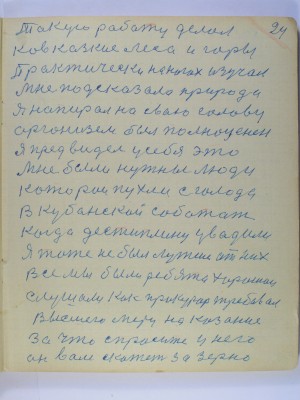 24
Такую работу делал
Ковказкие леса и горы
Практически на ногах изучал
Мне подсказала природа
Я напирал на сваю голову
организем был полноценен
Я предвидел у себя это
Мне были нужные люди
которои пухли с голода
В Кубанской
Когда дестиплину
Я тоже не был лутше от них
Все мы были ребята
слушали как прикурар требовал
Высшего меру на казание
За что спросите у него
он вам скажет за зерно